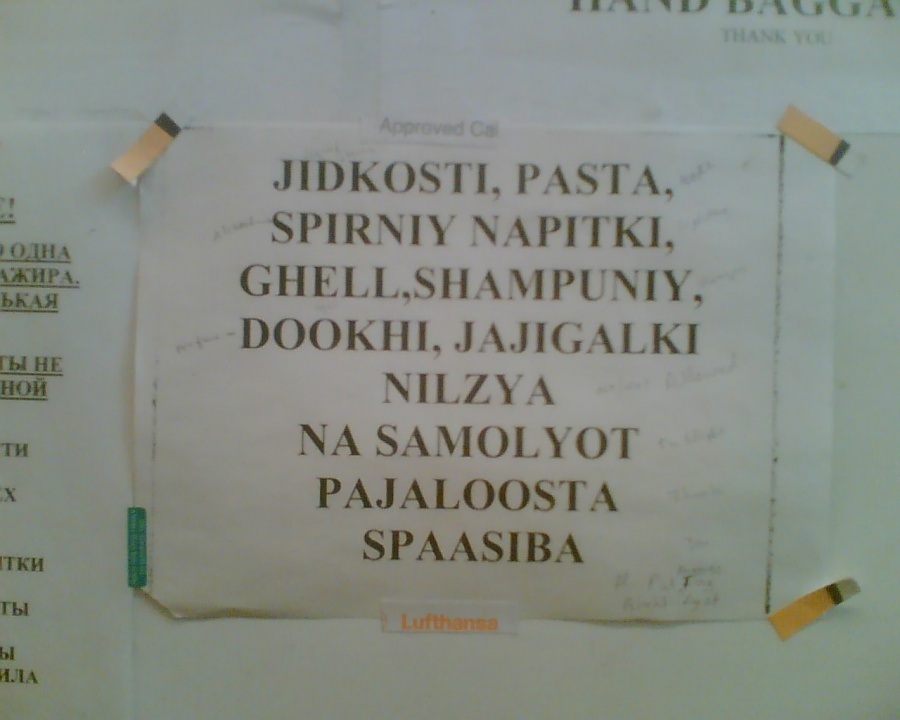 HAND BAGGA
THANK YOU
Approved Ca
JIDKOSTI, PASTA,
SPIRNIY NAPITKI,
GHELL,SHAMPUNIY,
DOOKHI, JAJIGALKI
NILZYA
NA SAMOLYOT
PAJALOOSTA
SPAASIBA
Lufthansa
ОДНА
АЖИРА.
ЬКАЯ
ТЫ НЕ
НОЙ
ТИ
Х
ИТКИ
ТЫ
Ы
ИЛА